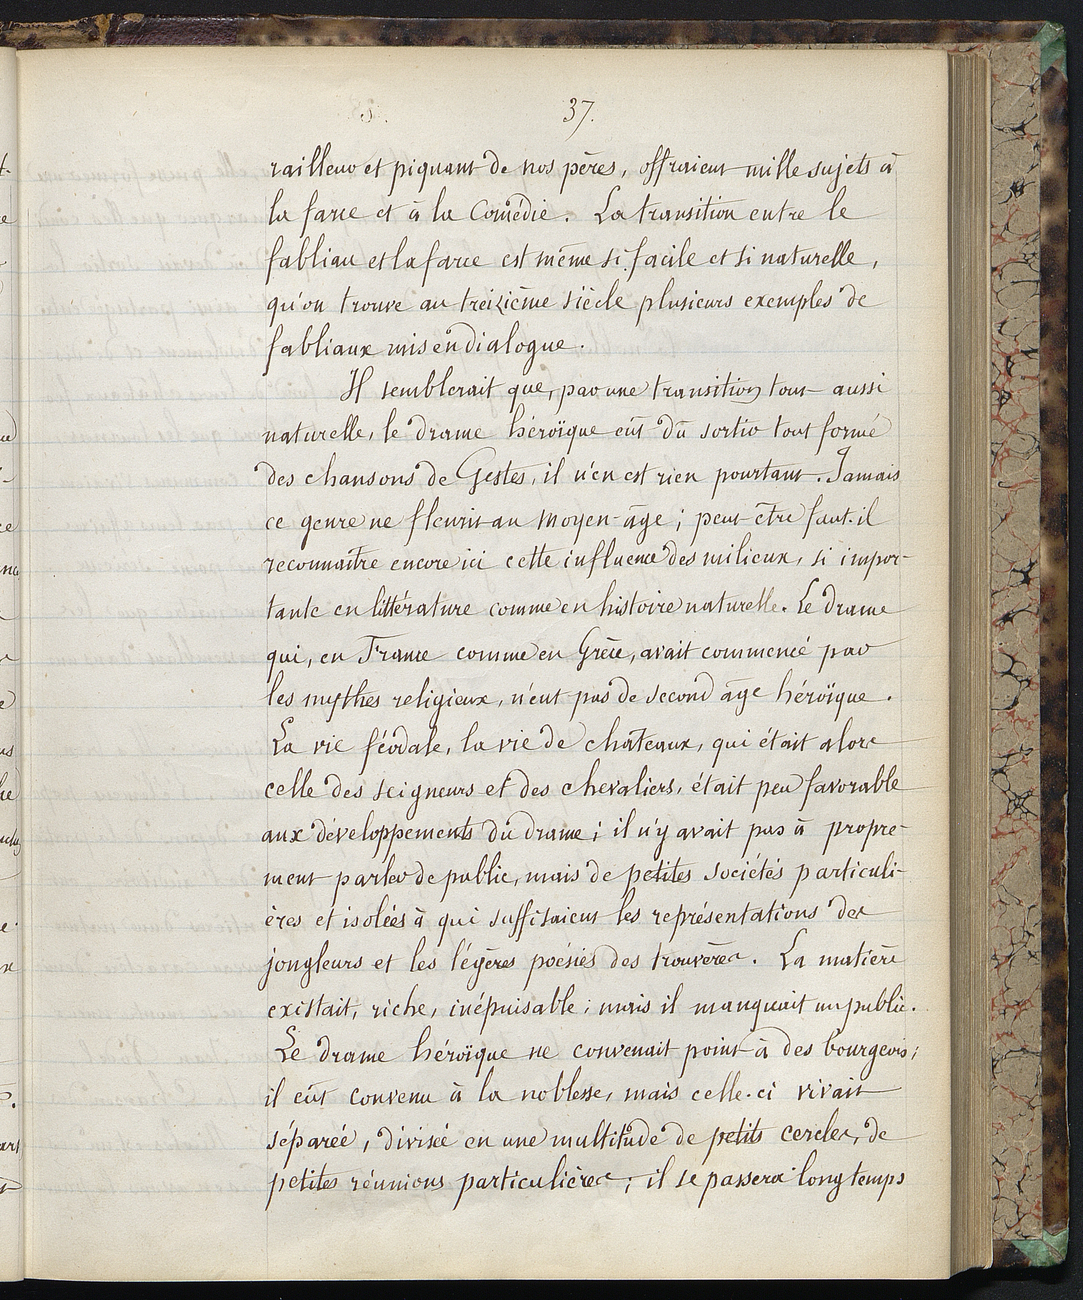 37.
railleur et piquant de nos pères, offraient mille sujets à
la farce et à la Comédie. La transition entre le
fabliau et la farce est même si facile et si naturelle,
qu'on trouve au treizième siècle plusieurs exemples de
fabliaux mis en dialogue.
Il semblerait que, par une transition tout aussi
naturelle, le drame héroïque eût dû sortir tout formé
des chansons de Gestes, il n'en est rien pourtant. Jamais
ce genre ne fleurit au Moyen-âge; peut-être faut-il
reconnaître encore ici cette influence des milieux, si impor-
tante en littérature comme en histoire naturelle. Le drame
qui, en France comme en Grèce, avait commencé par
les mythes religieux, n'eut pas de second âge héroïque.
La vie féodale, la vie de châteaux, qui était alors
celle des seigneurs et des chevaliers, était peu favorable
aux développements du drame; il n'y avait pas à propre-
ment parler de public, mais de petites sociétés particuli-
ères et isolées à qui suffisaient les représentations des
jongleurs et les légères poésies des trouvères. La matière
existait, riche, inépuisable; mais il manquait un public.
Le drame héroïque ne convenait point à des bourgeois;
il eût convenu à la noblesse, mais celle-ci vivait
séparée, divisée en une multitude de petits cercles, de
petites réunions particulières; il se passera longtemps